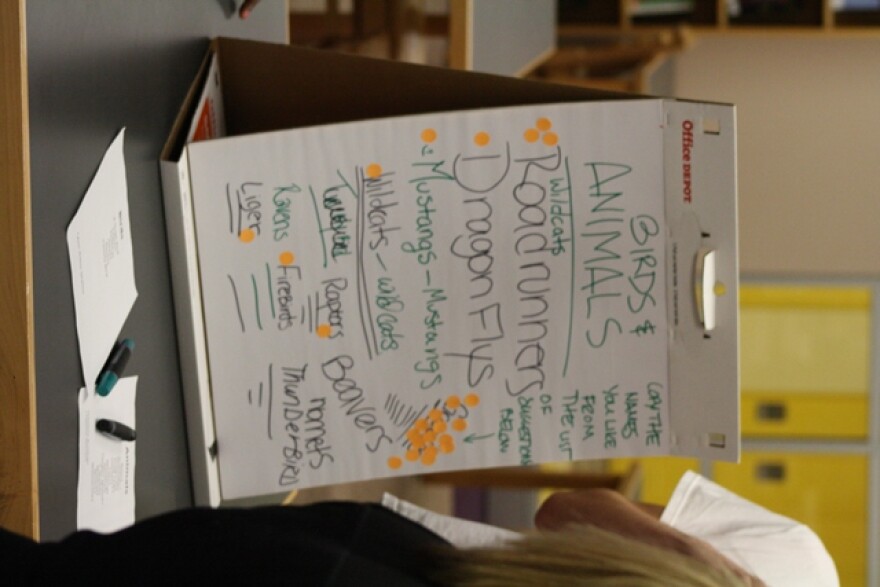 Office DEPOT
BIRDS &
ANIMALS
COPY THE
NAMES
YOU LIKE
FROM
THE LIST
OF
SUGGESTIONS
BELOW
Wildcats
Roadrunners
DragonFlys
Mustangs - Mustangs
Wildcats - Wildcats
Beavers
Raptors
Hornets
Ravens
Firebirds
ThunderBird
Liger